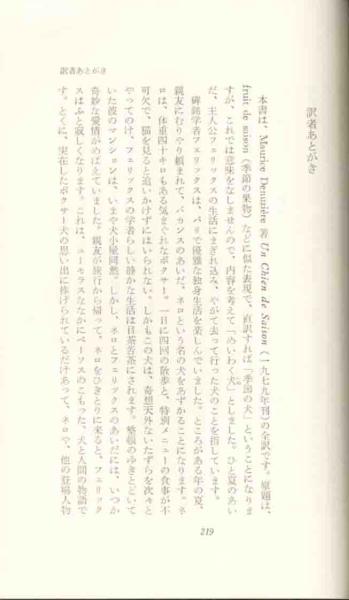 訳者あとがき
本書は、Maurice Denuzière 著 Un Chien de Saison(一九七九年刊)の全訳です。原題は、
fruit de saison(季節の果物)などに似た表現で、直訳すれば「季節の犬」ということになりま
すが、これでは意味をなしませんので、内容を考えて「めいわく犬」としました。ひと夏のあい
だ、主人公フェリックスの生活にまぎれ込み、やがて去って行った犬のことを指しています。
碑銘学者フェリックスは、パリで優雅な独身生活を楽しんでいました。ところがある年の夏、
親友にむりやり頼まれて、バカンスのあいだ、ネロという名の犬をあずかることになります。ネ
ロは、体重四十キロもある気まぐれなボクサー。一日に四回の散歩と、特別メニューの食事が不
可欠で、猫を見ると追いかけずにはいられない。しかもこの犬は、奇想天外ないたずらを次々と
やってのけ、フェリックスの学者らしい静かな生活は目茶苦茶にされます。整頓のゆきとどいて
いた彼のマンションは、いまや犬小屋同然。しかし、ネロとフェリックスのあいだには、いつか
奇妙な愛情がめばえていました。親友が旅行から帰って、ネロをひきとりに来ると、フェリック
スはふと寂しくなります。これは、ユーモラスななかにペーソスのこもった、犬と人間の物語で
す。とくに、実在したボクサー犬の思い出に捧げられているだけあって、ネロや、他の登場人物
訳者あとがき
219